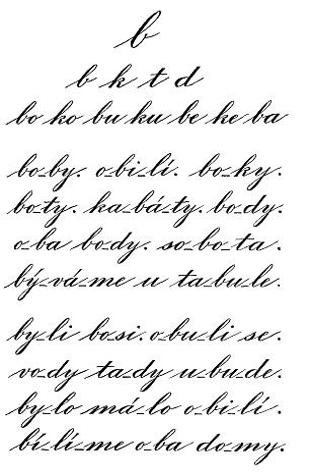 b
b k t d
bo ko bu ku be ke ba
bo-by. o-bi-lí. bo-ky.
bo-ty. ka-bá-ty. bo-dy.
o-ba bo-dy. so-bo-ta.
bý-vá-me u ta-bu-le.
by-li bo-si. o-bu-li se.
vo-dy ta-dy u-bu-de.
by-lo má-lo o-bi-lí.
bí-lí-me o-ba do-my.